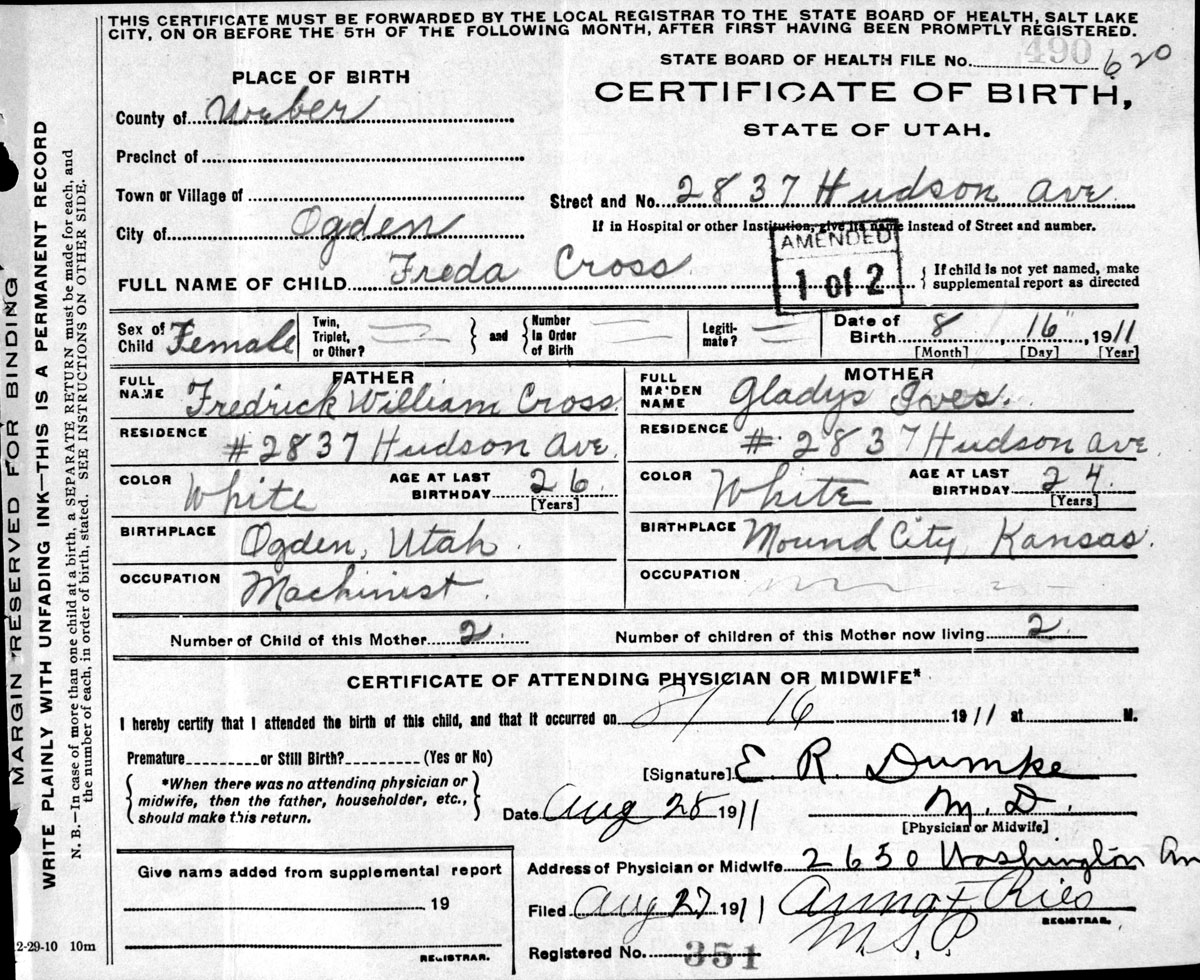 THIS CERTIFICATE MUST BE FORWARDED BY THE LOCAL REGISTRAR TO THE STATE BOARD OF HEALTH, SALT LAKE
CITY, ON OR BEFORE THE 5TH OF THE FOLLOWING MONTH, AFTER FIRST HAVING BEEN PROMPTLY REGISTERED.
STATE BOARD OF HEALTH FILE No. 490 620
PLACE OF BIRTH
CERTIFICATE OF BIRTH,
STATE OF UTAH.
County of Weber
Precinct of
Town or Village of
Street and No. 2837 Hudson Ave.
City of Ogden
If in Hospital or other Institution, give its name instead of Street and number.
AMENDED
1 of 2
FULL NAME OF CHILD Freda Cross
If child is not yet named, make
supplemental report as directed
Sex of Child Female
Twin, Triplet, or Other?
and
Number in Order of Birth
Legiti-mate?
Date of Birth 8, 16, 1911
[Month] [Day] [Year]
FATHER
FULL NAME Fredrick William Cross.
RESIDENCE #2837 Hudson Ave.
COLOR White
AGE AT LAST BIRTHDAY 26. [Years]
BIRTHPLACE Ogden, Utah.
OCCUPATION Machinist.
MOTHER
FULL MAIDEN NAME Gladys Ives.
RESIDENCE # 2837 Hudson Ave.
COLOR White
AGE AT LAST BIRTHDAY 24. [Years]
BIRTHPLACE Mound City, Kansas.
OCCUPATION
Number of Child of this Mother 2.
Number of children of this Mother now living 2.
CERTIFICATE OF ATTENDING PHYSICIAN OR MIDWIFE*
I hereby certify that I attended the birth of this child, and that it occurred on 8/ 16 1911 at M.
Premature or Still Birth? (Yes or No)
*When there was no attending physician or
midwife, then the father, householder, etc.,
should make this return.
[Signature] E. R. Dumke
M. D.
[Physician or Midwife]
Date Aug 25 1911
Give name added from supplemental report
19
REGISTRAR.
Address of Physician or Midwife 2650 Washington Av
Filed Aug 27 1911
REGISTRAR.
Registered No. 351
2-29-10 10m
MARGIN RESERVED FOR BINDING
WRITE PLAINLY WITH UNFADING INK—THIS IS A PERMANENT RECORD
N. B.—In case of more than one child at a birth, a SEPARATE RETURN must be made for each, and
the number of each, in order of birth, stated. SEE INSTRUCTIONS ON OTHER SIDE.